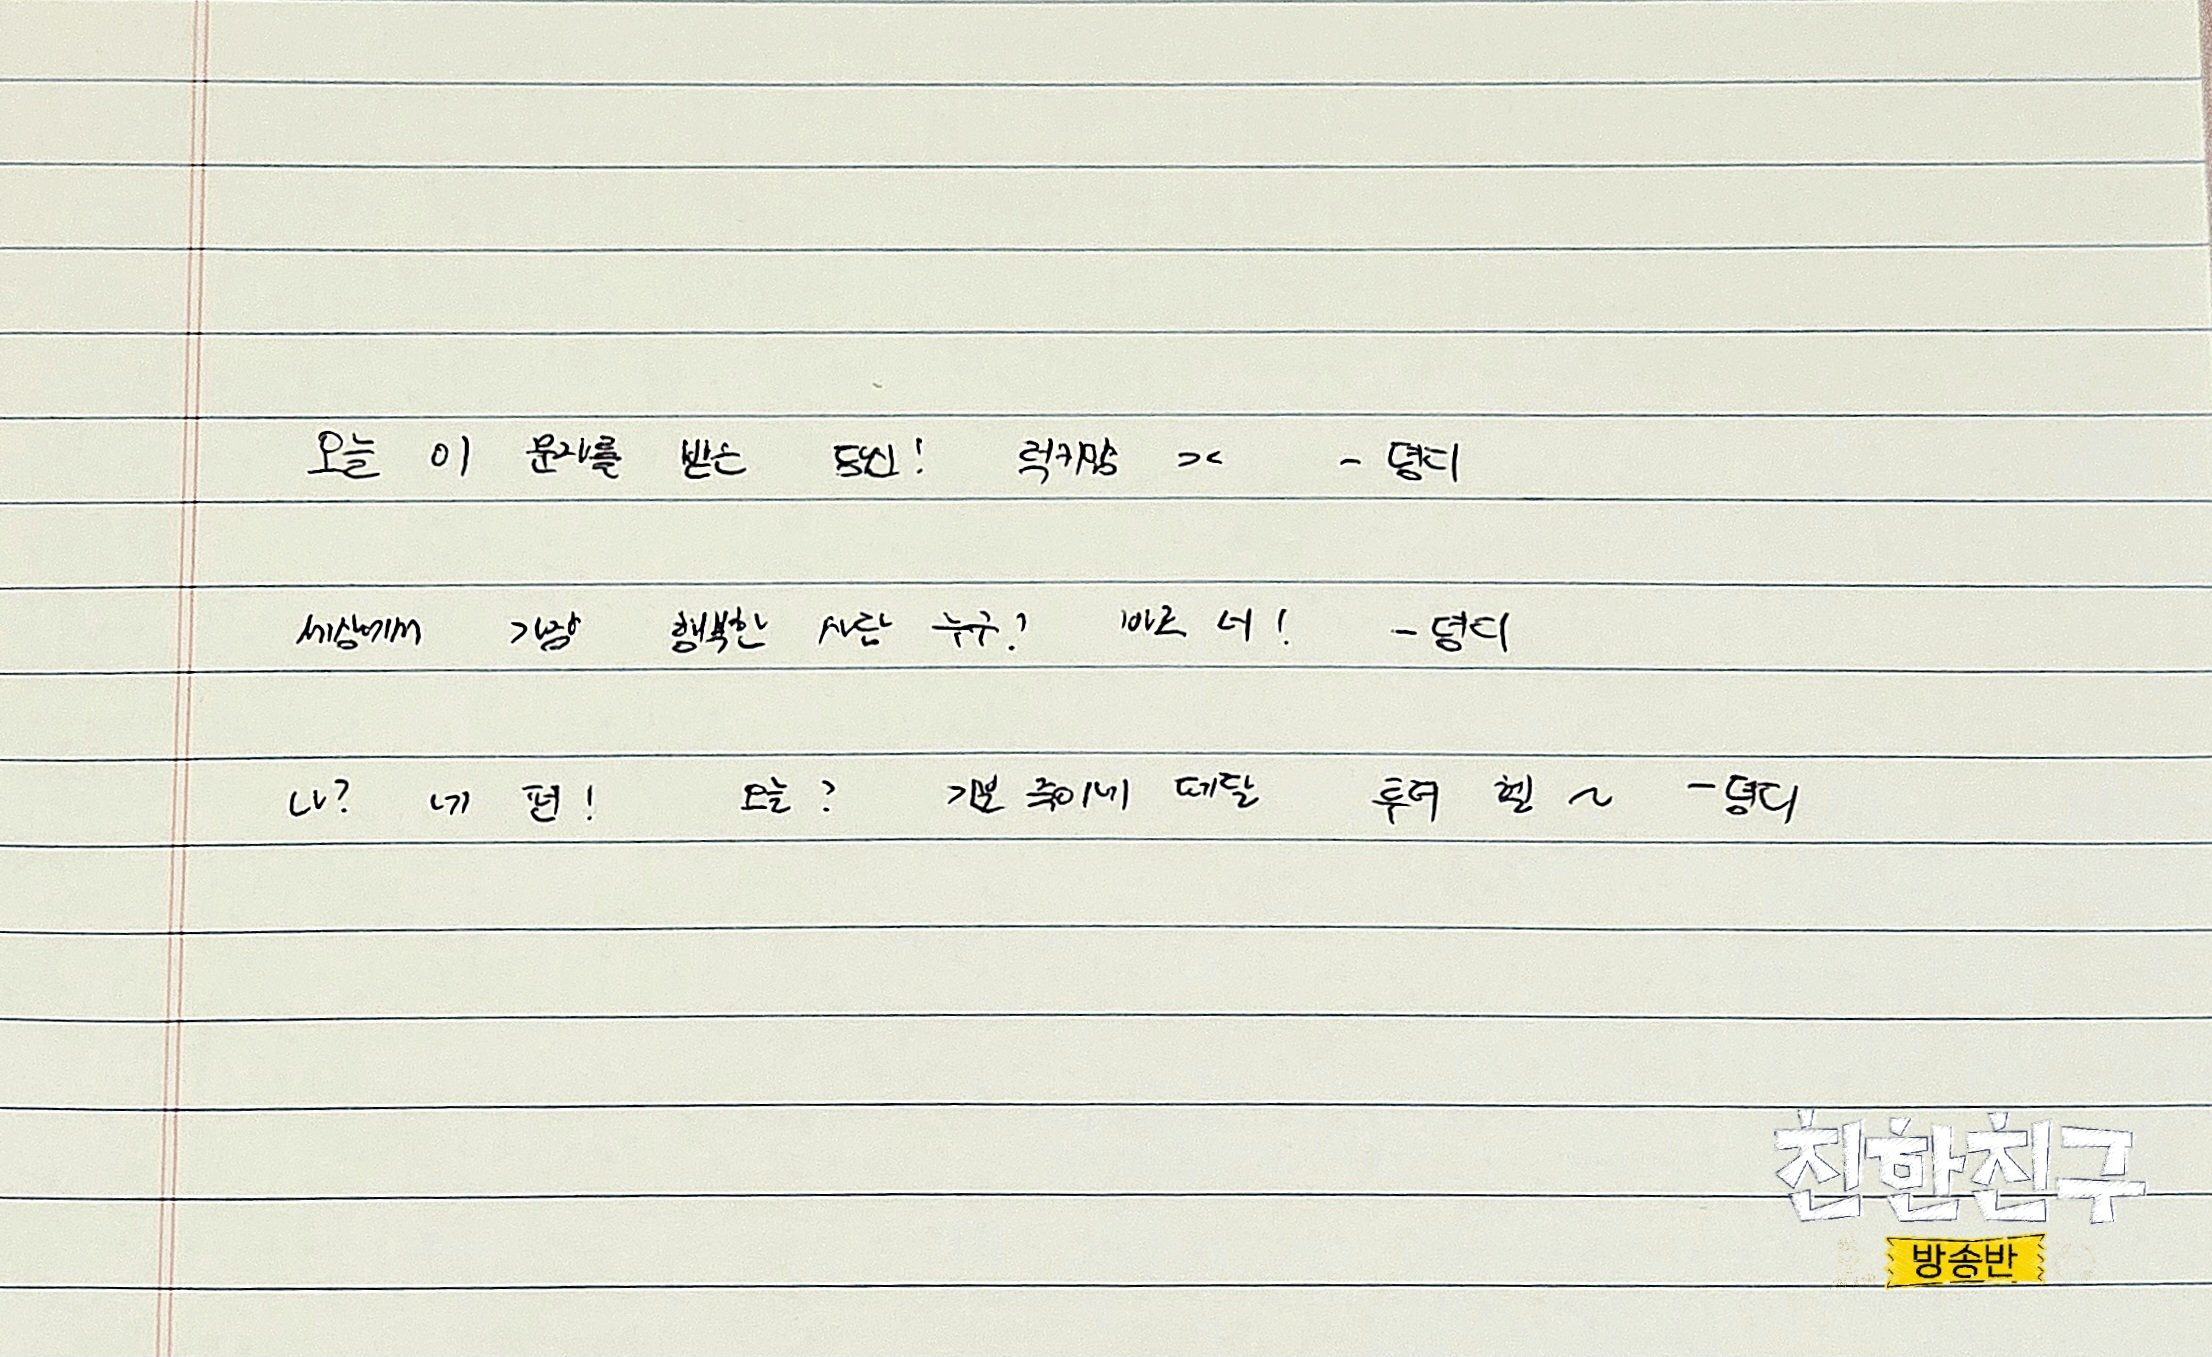 오늘 이 문자를 받은 당신! 럭키맘 >< - 뎡디
세상에서 가장 행복한 사람 누구? 바로 너! - 뎡디
나? 네 편! 오늘? 기분 죽이네 떼달 투더 헬 ~ - 뎡디
친한친구
방송반